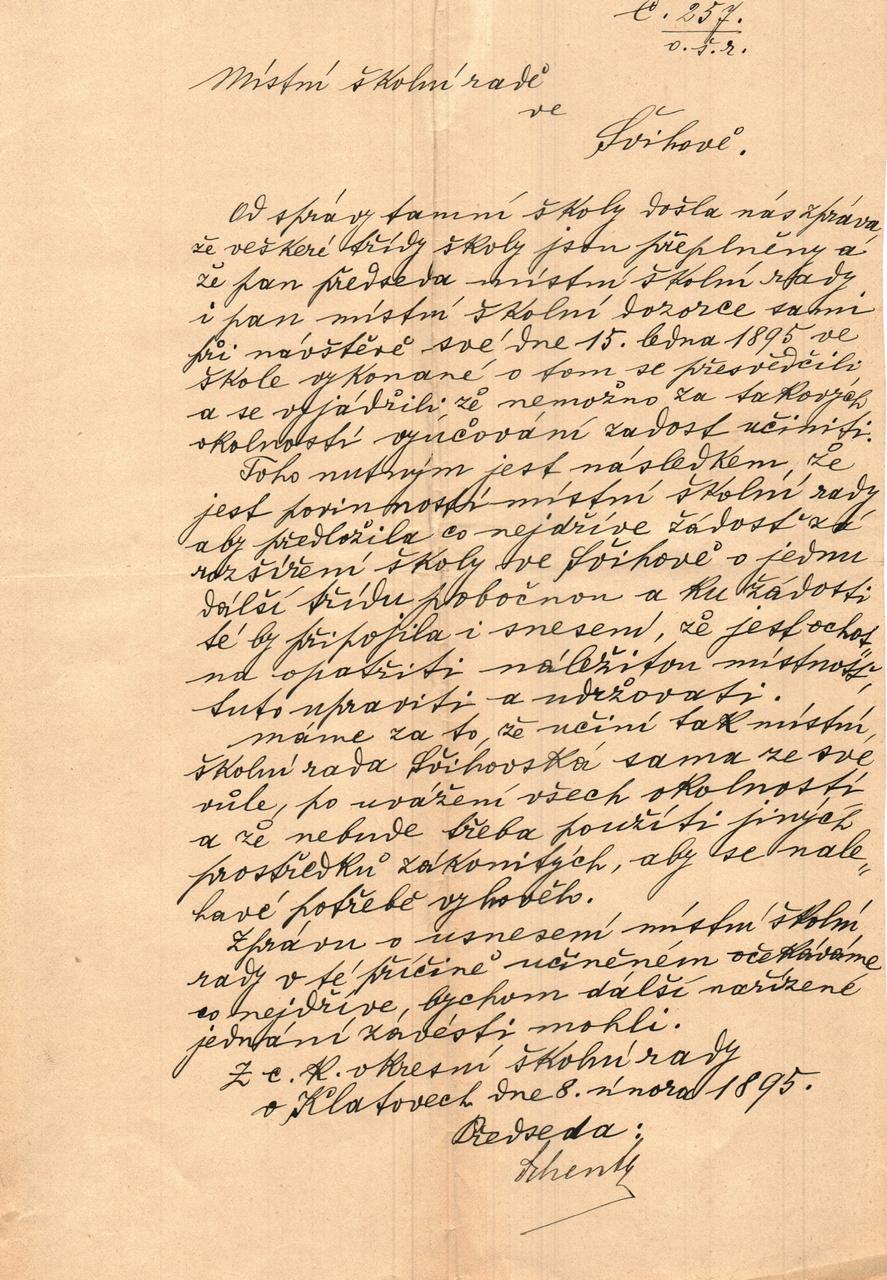 č. 257.
o. š. r.
Místní školní radě
ve
Švihově.
Od správy tamní školy došla nás zpráva,
že veškeré třídy školy jsou přeplněny a
že pan předseda místní školní rady
i pan místní školní dozorce sami
při návštěvě své dne 15. ledna 1895 ve
škole vykonané o tom se přesvědčili
a se vyjádřili, že nemožno za takových
okolností vyučování zadost učiniti.
Toho nutným jest následkem, že
jest povinností místní školní rady
aby předložila co nejdříve žádost za
rozšíření školy ve Švihově o jednu
další třídu pobočnou a ku žádosti
té by připojila i snesení, že jest ochot„
na opatřiti náležitou místnost,
tuto upraviti a udržovati.
Máme za to, že učiní tak místní
školní rada Švihovská sama ze své
vůle, po uvážení všech okolností
a že nebude třeba použíti jiných
prostředků zákonitých, aby se nale„
havé potřebě vyhovělo.
Zprávu o usnesení místní školní
rady v té příčině učiněném očekáváme
co nejdříve, bychom další nařízené
jednání zavésti mohli.
Z c. k. okresní školní rady
v Klatovech dne 8. února 1895.
Předseda: